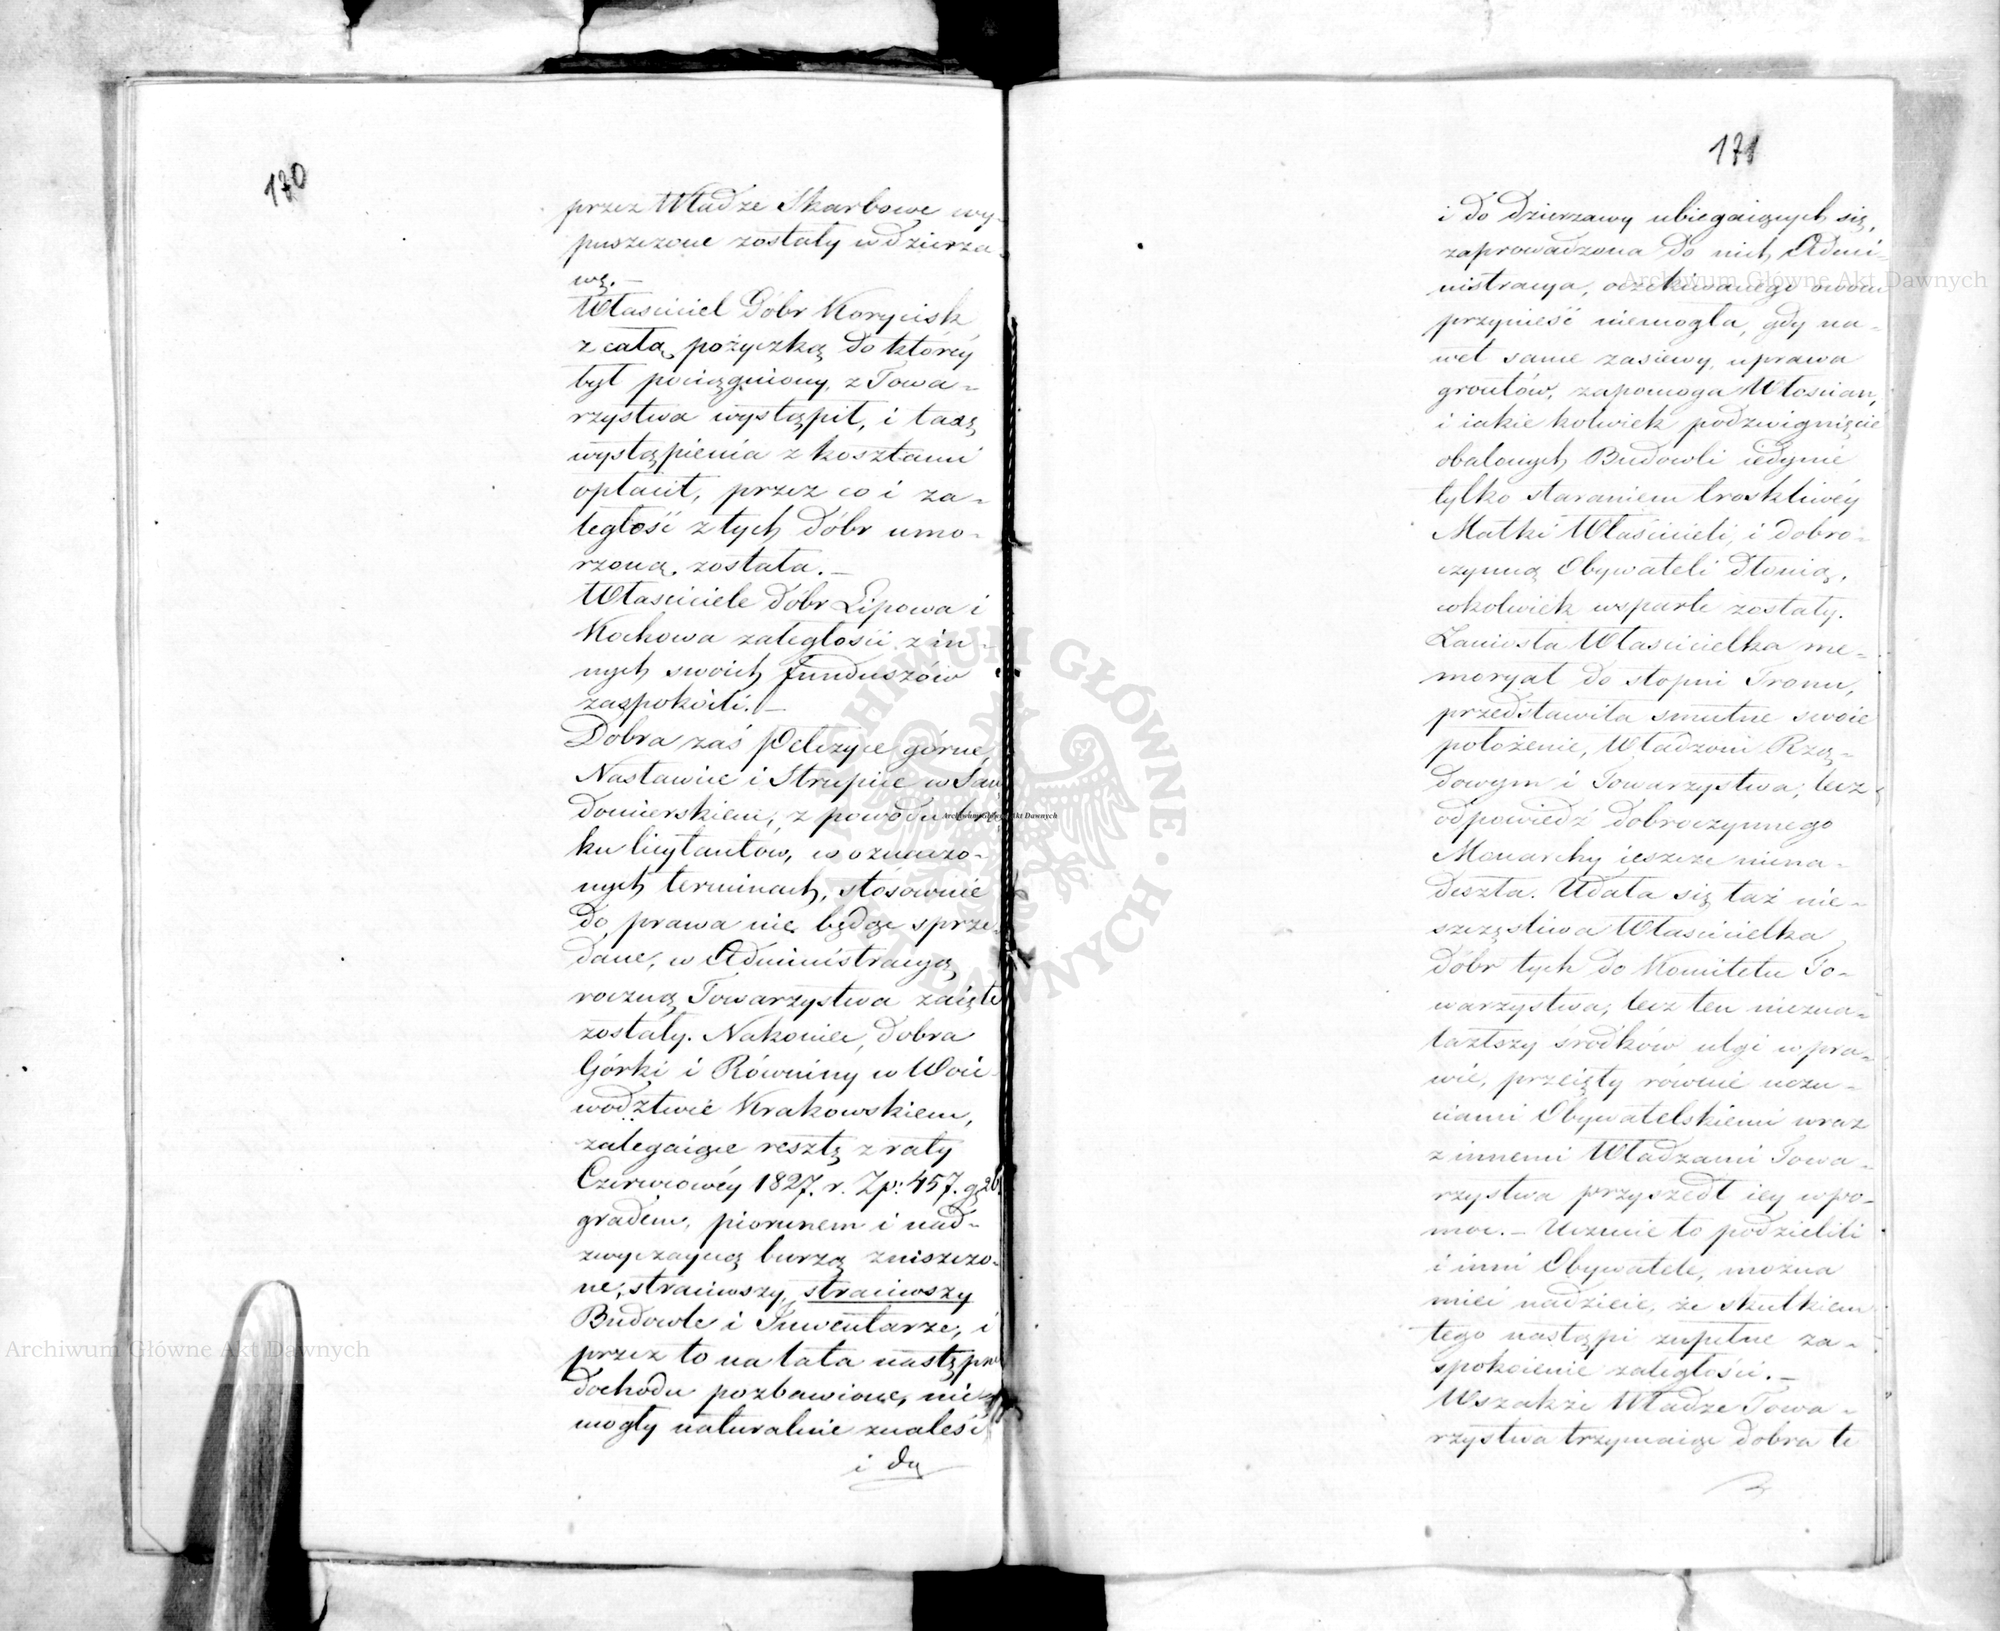 170
przez Władze Skarbowe wy-
puszczone zostały w dzierża-
wę. —
Właściciel Dóbr Korycisk
z całą pożyczką do któréy
był pociągniony, z Towa-
rzystwa wystąpił, i taxę
wystąpienia z kosztami
opłacił, przez co i za-
ległość z tych Dóbr umo-
rzoną została. —
Właściciele Dóbr Lipowa i
Kochowa zaległości z in-
nych swoich funduszów
zaspokoili. —
Dobra zaś Pełczyce górne,
Nasławice i Strupice w San-
domierskiem, z powodu bra-
ku licytantów, w oznaczo-
nych terminach, stósownie
do prawa nie będąc sprze-
dane, w Administracyą
roczną Towarzystwa zaięte
zostały. Nakoniec, Dobra
Górki i Równiny w Woie-
wództwie Krakowskiem,
zalegaiące resztę z raty
Czerwcowéy 1827. r. Zp: 457. g 26.
gradem, piorunem i nad-
zwyczayną burzą zniszczo-
ne, straciwszy, straciwszy
Budowle i Inwentarze, i
przez to na lata następne
dochodu pozbawione, nie
mogły naturalnie znaleść
i do
171
i do dzierzawy ubiegaiących się,
zaprowadzona do nich Admi-
nistracya, oczekiwanego owocu
przynieść niemogła, gdy na-
wet same zasiewy, uprawa
gruntów, zapomoga Włościan,
i iakie kolwiek podzwignięcie
obalonych Budowli iedynie
tylko staraniem troskliwéy
Matki Właścicieli, i dobro-
czynną Obywateli dłonią,
cokolwiek wsparte zostały.
Zaniosła Właścicielka me-
moryał do stopni Tronu,
przedstawiła smutne swoie
położenie, Władzom Rzą-
dowym i Towarzystwa, lecz
odpowiedź dobroczynnego
Monarchy ieszcze niena-
deszła. Udała się taż nie-
szczęśliwa Właścicielka
Dóbr tych do Komitetu To-
warzystwa, lecz ten niezna-
lazłszy środków ulgi w pra-
wie, przeięty równie uczu-
ciami Obywatelskiemi wraz
z innemi Władzami Towa-
rzystwa przyszedł iey w po-
moc. — Uczucie to podzielili
i inni Obywatele, można
mieć nadzieie, że skutkiem
tego nastąpi zupełne za-
spokoienie zaległości. —
Wszakże Władze Towa-
rzystwa trzymaiąc dobra te
Archiwum Główne Akt Dawnych
Archiwum Główne Akt Dawnych
Archiwum Główne Akt Dawnych
ARCHIWUM GŁÓWNE AKT DAWNYCH